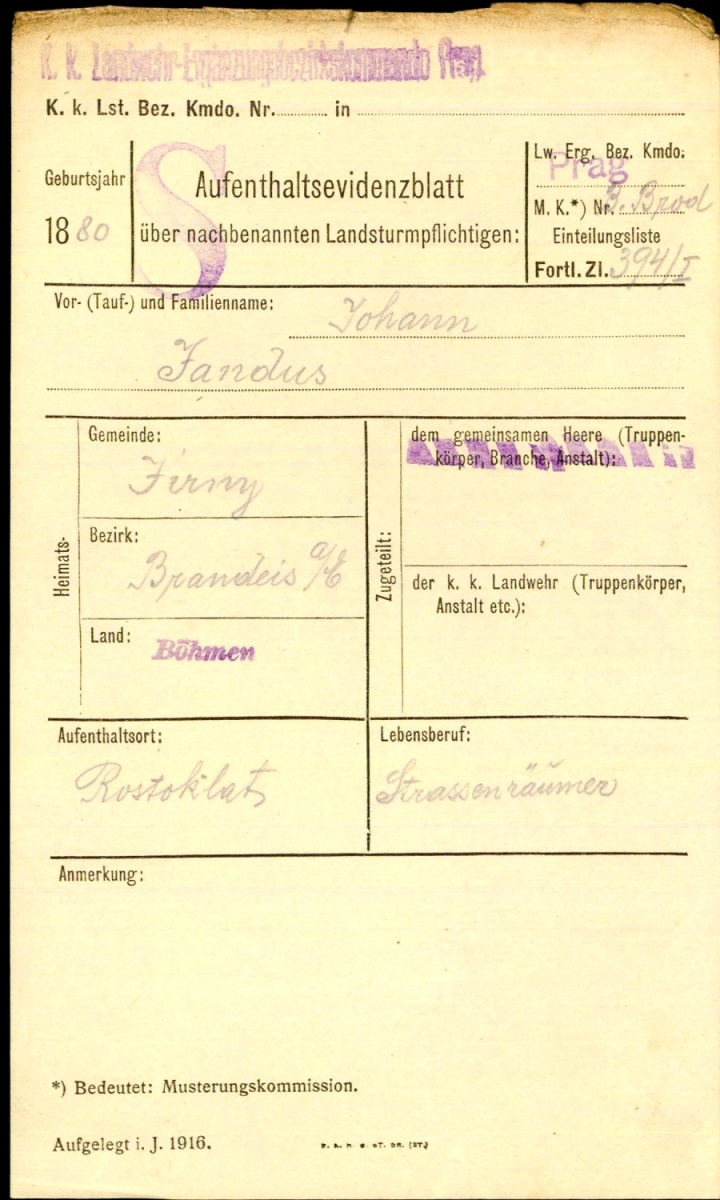 K. k. Landwehr-Ergänzungsbezirkskommando Prag.
K. k. Lst. Bez. Kmdo. Nr. in
Geburtsjahr
1880
S
Aufenthaltsevidenzblatt
über nachbenannten Landsturmpflichtigen:
Lw. Erg. Bez. Kmdo.
Prag
M. K.*) Nr. B. Brod
Einteilungsliste
Fortl. Zl. 394/I
Vor- (Tauf-) und Familienname: Johann
Jandus
Heimats-
Gemeinde:
Jirny
Bezirk:
Brandeis a/E
Land:
Böhmen
Zugeteilt:
dem gemeinsamen Heere (Truppen-
körper, Branche, Anstalt):
der k. k. Landwehr (Truppenkörper,
Anstalt etc.):
Aufenthaltsort:
Rostoklat
Lebensberuf:
Strassenräumer
Anmerkung:
*) Bedeutet: Musterungskommission.
Aufgelegt i. J. 1916.